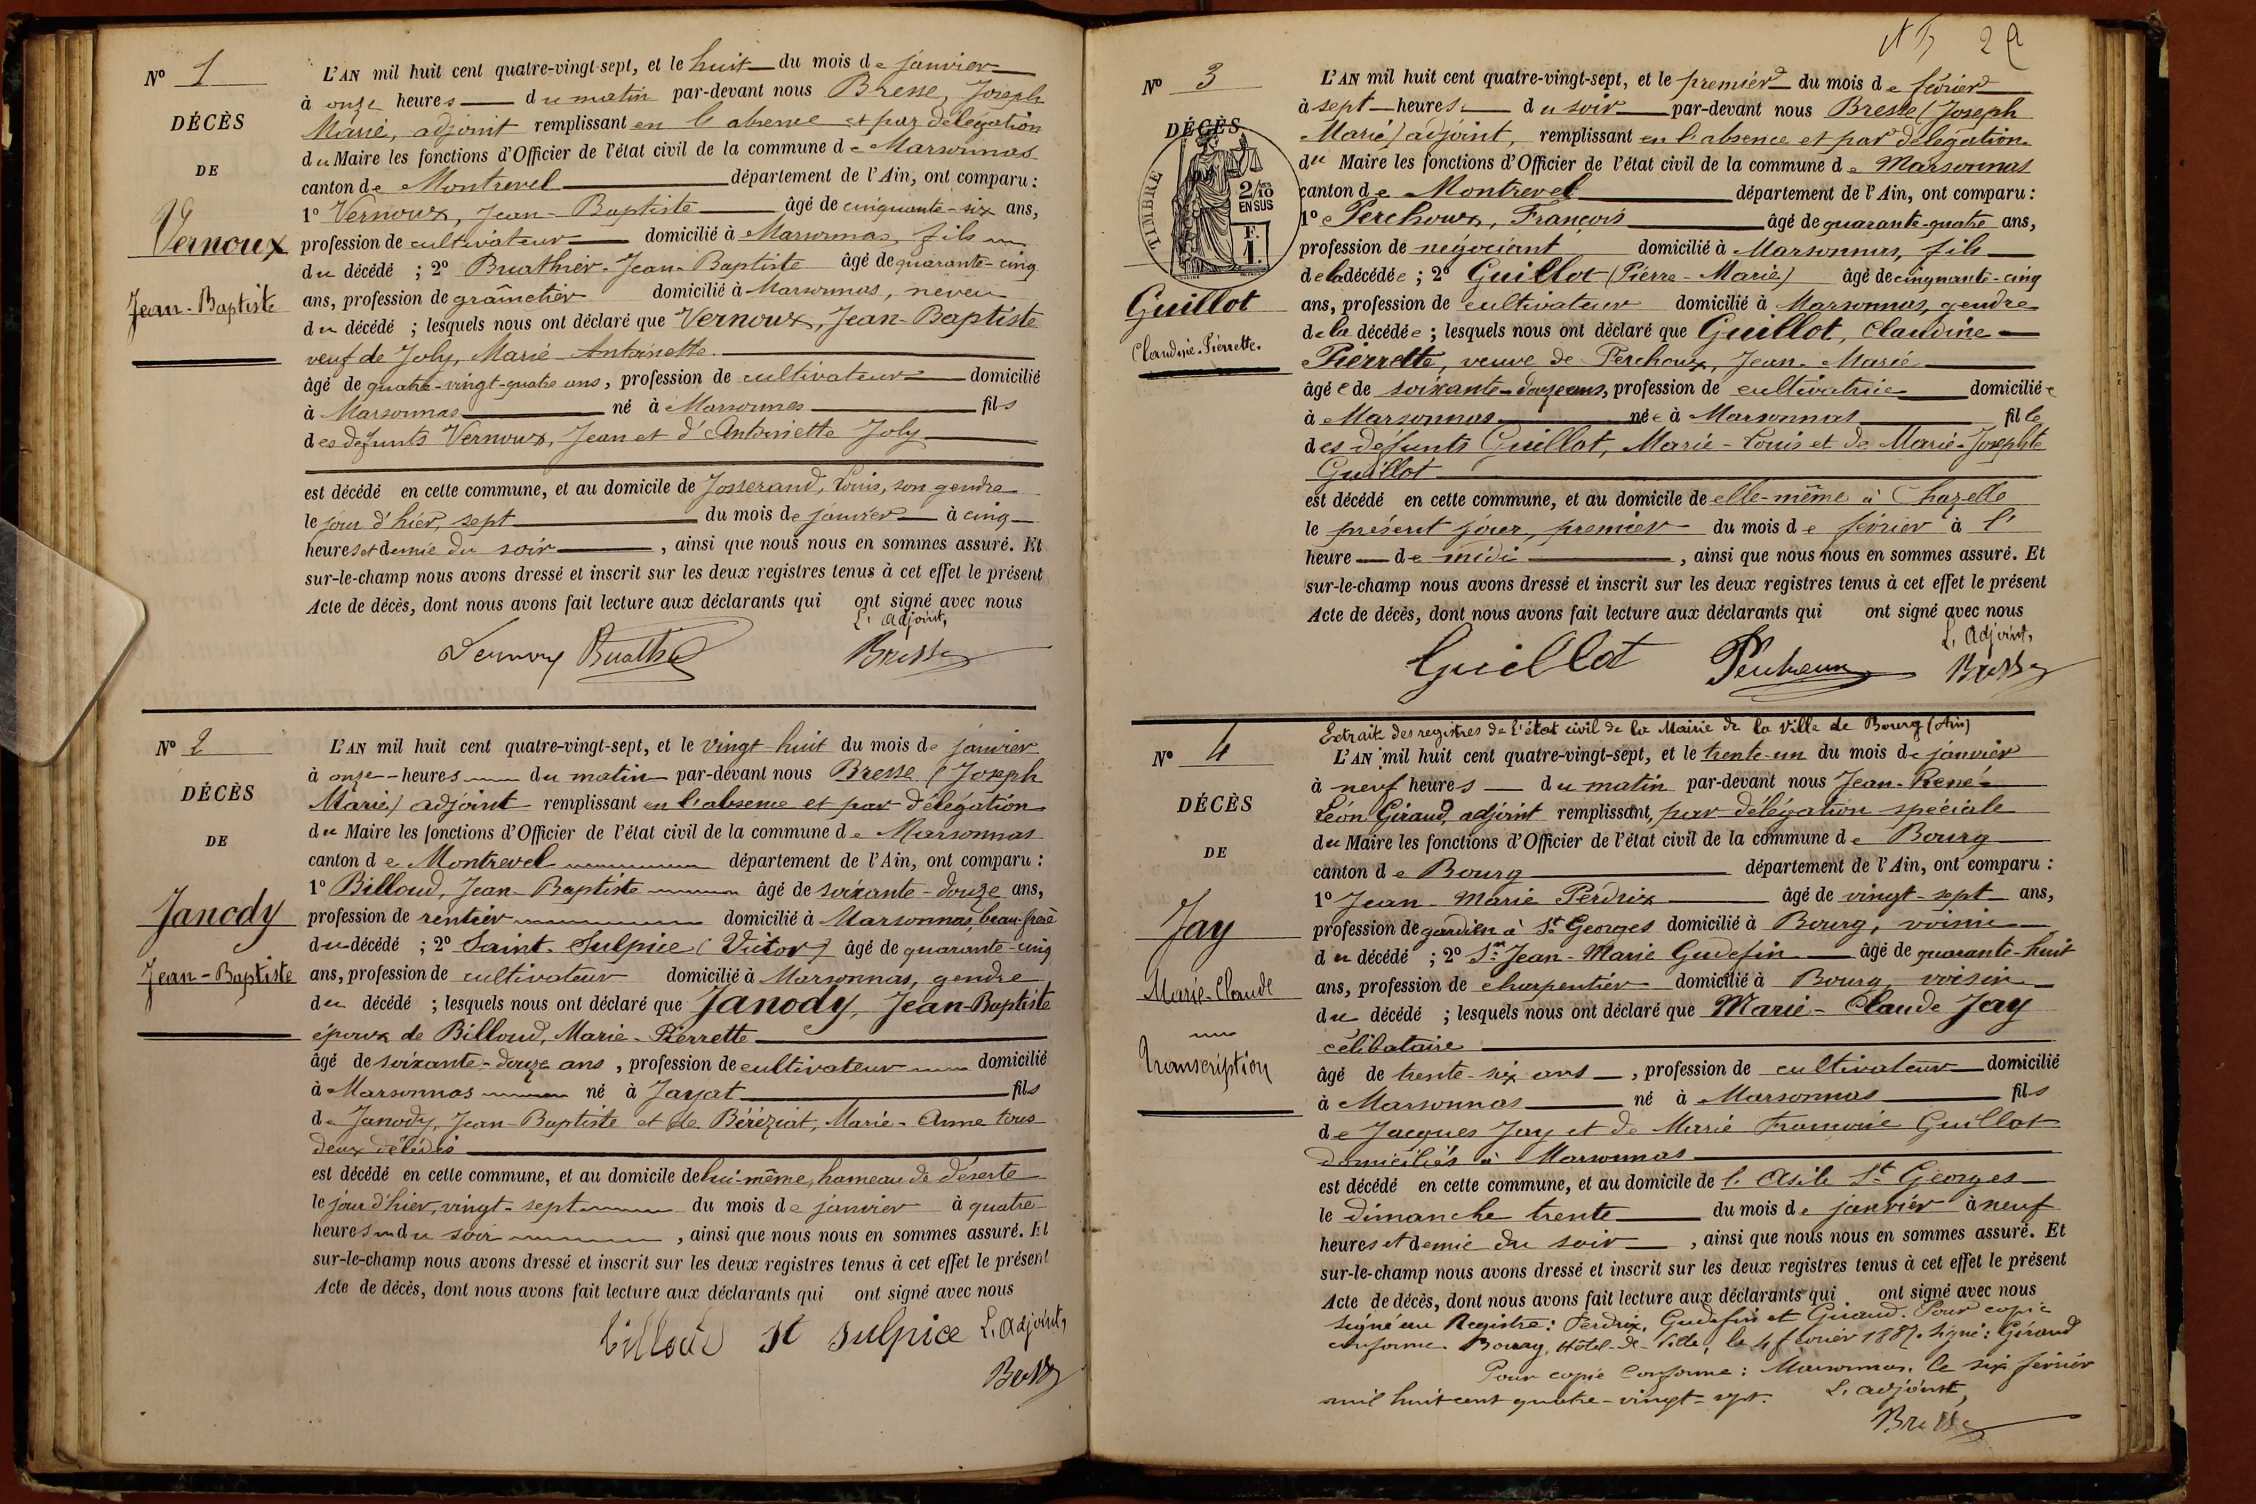 N° 1
DÉCÈS
DE
Vernoux
Jean-Baptiste
L'AN mil huit cent quatre-vingt-sept, et le huit du mois de janvier
à onze heures du matin par-devant nous Bresse, Joseph
Marie, adjoint remplissant en l'absence et par délégation
du Maire les fonctions d'Officier de l'état civil de la commune de Marsonnas
canton de Montrevel département de l'Ain, ont comparu :
1° Vernoux, Jean-Baptiste âgé de cinquante-six ans,
profession de cultivateur domicilié à Marsonnas, fils
du décédé ; 2° Buathier-Jean-Baptiste âgé de quarante-cinq
ans, profession de grainetier domicilié à Marsonnas, neveu
du décédé ; lesquels nous ont déclaré que Vernoux, Jean-Baptiste
veuf de Joly, Marie-Antoinette
âgé de quatre-vingt-quatre ans, profession de cultivateur domicilié
à Marsonnas né à Marsonnas fils
des défunts Vernoux, Jean et d'Antoinette Joly
est décédé en cette commune, et au domicile de Josserand, Louis, son gendre
le jour d'hier, sept du mois de janvier à cinq
heures et demie du soir, ainsi que nous nous en sommes assuré. Et
sur-le-champ nous avons dressé et inscrit sur les deux registres tenus à cet effet le présent
Acte de décès, dont nous avons fait lecture aux déclarants qui ont signé avec nous
L'adjoint,
Vernoux Buathier Bresse
N° 2
DÉCÈS
DE
Janody
Jean-Baptiste
L'AN mil huit cent quatre-vingt-sept, et le vingt-huit du mois de janvier
à onze heures du matin par-devant nous Bresse (Joseph
Marie) adjoint remplissant en l'absence et par délégation
du Maire les fonctions d'Officier de l'état civil de la commune de Marsonnas
canton de Montrevel département de l'Ain, ont comparu :
1° Billoud, Jean-Baptiste âgé de soixante-douze ans,
profession de rentier domicilié à Marsonnas, beau-frère
du décédé ; 2° Saint-Sulpice (Victor) âgé de quarante-cinq
ans, profession de cultivateur domicilié à Marsonnas, gendre
du décédé ; lesquels nous ont déclaré que Janody, Jean-Baptiste
époux de Billoud, Marie-Pierrette
âgé de soixante-douze ans, profession de cultivateur domicilié
à Marsonnas né à Jayat fils
de Janody, Jean-Baptiste et de Béréziat, Marie-Anne tous
deux décédés
est décédé en cette commune, et au domicile de lui-même, hameau de déserte
le jour d'hier, vingt-sept du mois de janvier à quatre
heures du soir, ainsi que nous nous en sommes assuré. Et
sur-le-champ nous avons dressé et inscrit sur les deux registres tenus à cet effet le présent
Acte de décès, dont nous avons fait lecture aux déclarants qui ont signé avec nous
billoud St Sulpice L'adjoint,
Bresse
29
N° 3
DÉCÈS
TIMBRE
2/10 EN SUS
F. 1.
Guillot
Claudine-Pierrette.
L'AN mil huit cent quatre-vingt-sept, et le premier du mois de février
à sept heures du soir par-devant nous Bresse (Joseph
Marie) adjoint, remplissant en l'absence et par délégation
du Maire les fonctions d'Officier de l'état civil de la commune de Marsonnas
canton de Montrevel département de l'Ain, ont comparu :
1° Perchoux, François âgé de quarante-quatre ans,
profession de négociant domicilié à Marsonnas, fils
de la décédée ; 2° Guillot (Pierre-Marie) âgé de cinquante-cinq
ans, profession de cultivateur domicilié à Marsonnas, gendre
de la décédée ; lesquels nous ont déclaré que Guillot, Claudine
Pierrette, veuve de Perchoux, Jean-Marie
âgée de soixante-douze ans, profession de cultivatrice domiciliée
à Marsonnas née à Marsonnas fille
des défunts Guillot, Marie-Louis et de Marie-Josephte
Guillot
est décédé en cette commune, et au domicile de elle-même à Chazelle
le présent jour, premier du mois de février à l'
heure de midi, ainsi que nous nous en sommes assuré. Et
sur-le-champ nous avons dressé et inscrit sur les deux registres tenus à cet effet le présent
Acte de décès, dont nous avons fait lecture aux déclarants qui ont signé avec nous
L'adjoint,
Guillot Perchoux Bresse
N° 4
DÉCÈS
DE
Jay
Marie-Claude
Transcription
Extrait des registres de l'état civil de la Mairie de la Ville de Bourg (Ain)
L'AN mil huit cent quatre-vingt-sept, et le trente-un du mois de janvier
à neuf heures du matin par-devant nous Jean-René-
Léon Giraud, adjoint remplissant, par délégation spéciale
du Maire les fonctions d'Officier de l'état civil de la commune de Bourg
canton de Bourg département de l'Ain, ont comparu :
1° Jean-Marie Perdrix âgé de vingt-sept ans,
profession de gardien à St Georges domicilié à Bourg, voisin
du décédé ; 2° Sr Jean-Marie Gudefin âgé de quarante-huit
ans, profession de charpentier domicilié à Bourg, voisin
du décédé ; lesquels nous ont déclaré que Marie-Claude Jay
célibataire
âgé de trente-six ans, profession de cultivateur domicilié
à Marsonnas né à Marsonnas fils
de Jacques Jay et de Marie Françoise Guillot
domiciliés à Marsonnas
est décédé en cette commune, et au domicile de l'Asile St Georges
le dimanche trente du mois de janvier à neuf
heures et demie du soir, ainsi que nous nous en sommes assuré. Et
sur-le-champ nous avons dressé et inscrit sur les deux registres tenus à cet effet le présent
Acte de décès, dont nous avons fait lecture aux déclarants qui ont signé avec nous
signé au Registre : Perdrix, Gudefin et Giraud. Pour copie
conforme Bourg, Hôtel-de-Ville, le 4 février 1887. Signé : Giraud
Pour copie conforme : Marsonnas, le six février
mil huit cent quatre-vingt-sept. L'adjoint,
Bresse